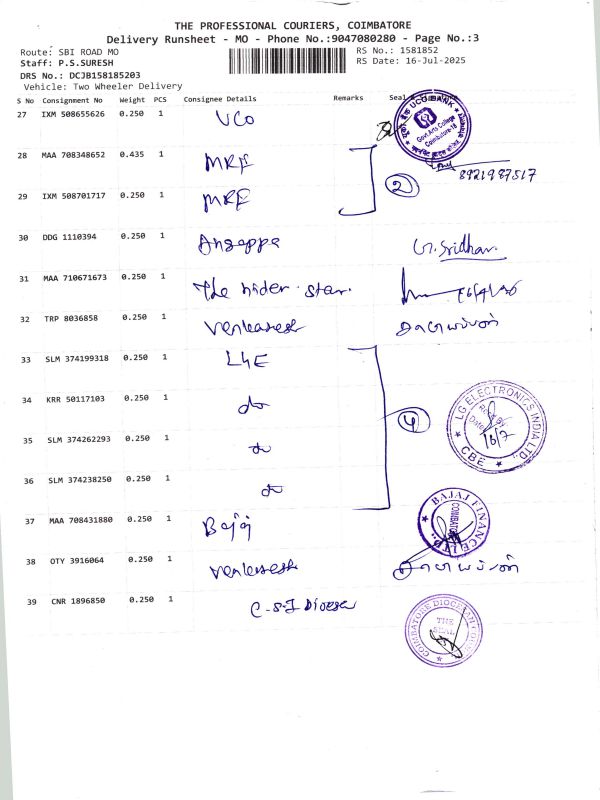 THE PROFESSIONAL COURIERS, COIMBATORE
Delivery Runsheet - MO - Phone No.:9047080280 - Page No.:3
Route: SBI ROAD MO
RS No.: 1581852
Staff: P.S.SURESH
RS Date: 16-Jul-2025
DRS No.: DCJB158185203
Vehicle: Two Wheeler Delivery
S No Consignment No Weight PCS Consignee Details Remarks Seal
27 IXM 508655626 0.250 1 UCO
UCO BANK
Govt. Arts College
Coimbatore-18
28 MAA 708348652 0.435 1 MRF
2
8921987517
29 IXM 508701717 0.250 1 MRF
30 DDG 1110394 0.250 1 Ansappa G. Sridhar
31 MAA 710671673 0.250 1 The hider star
32 TRP 8036858 0.250 1 Venkatesh
33 SLM 374199318 0.250 1 L4E
34 KRR 50117103 0.250 1 do
4
LG ELECTRONICS INDIA LTD.,
Date
16/7
CBE
35 SLM 374262293 0.250 1 do
36 SLM 374238250 0.250 1 do
37 MAA 708431880 0.250 1 Bajaj
BAJAJ FINANCE LTD.,
38 OTY 3916064 0.250 1 Venkatesh
39 CNR 1896850 0.250 1 C.S.I Diocese
COIMBATORE DIOCESAN
THE